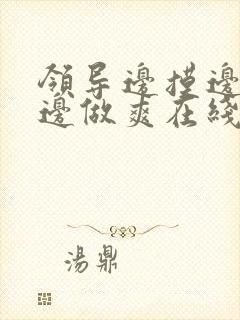 領导邊摸邊
邊做爽在綫
湯鼎